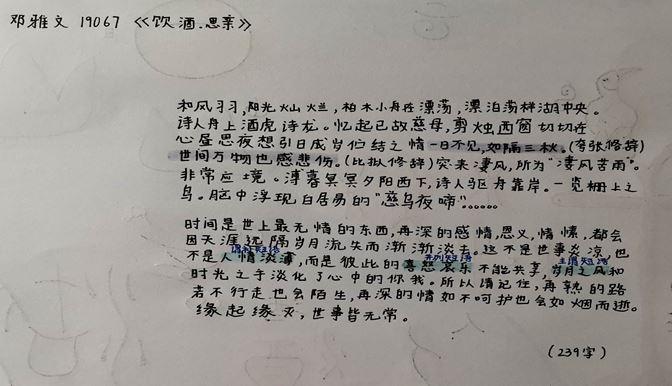 邓雅文 19067 《饮酒.思亲》
和风习习,阳光灿烂,柏木小舟在漂荡,漂泊荡样湖中央。
诗人舟上酒虎诗龙。忆起已故慈母,剪烛西窗切切在
心昼思夜想引日成岁伯结之情一日不见,如隔三秋。(夸张修辞)
世间万物也感悲伤。(比拟修辞)突来凄风,所为"凄风苦雨"。
非常应境。薄暮冥冥夕阳西下,诗人驱舟靠岸。一览栅上之
鸟。脑中浮现白居易的"慈乌夜啼"……
时间是世上最无情的东西,再深的感情,恩义,情愫,都会
因天涯远隔岁月流失而渐渐淡去。这不是世事炎凉,也
不是人情淡薄,而是彼此的喜怒哀乐不能共享,岁月之风和
时光之手淡化了心中的你我。所以请记住,再熟的路
若不行走也会陌生,再深的情如不呵护也会如烟而逝。
缘起缘灭,世事皆无常。
(239字)